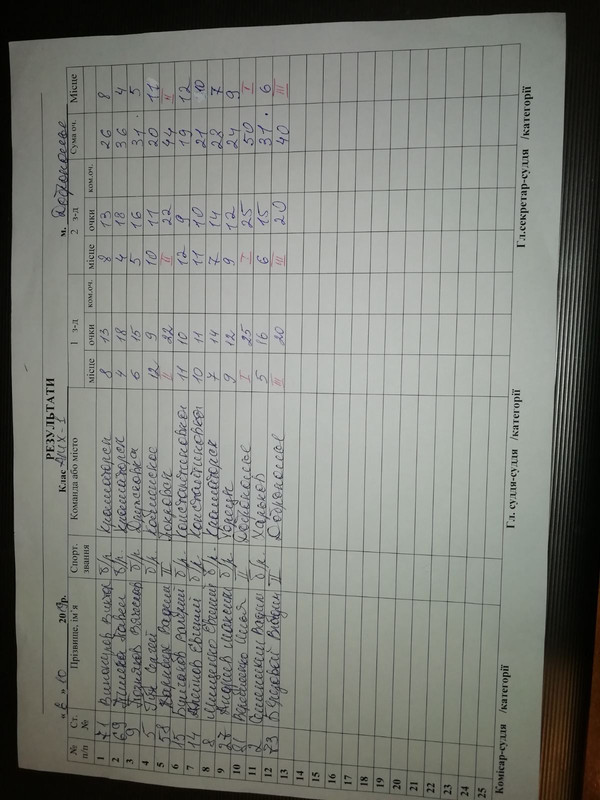 РЕЗУЛЬТАТИ
"6" 10 2019р. Клас АМХ-1 м. Доброполье
№ п/п Ст. № Прізвище, ім'я Спорт. звання Команда або місто 1 з-д 2 з-д Сума оч. Місце
місце очки ком.оч. місце очки ком.оч.
1 71 Виноградов Виктор б/р. Краматорск 8 13 8 13 26 8
2 69 Павел б/р. Краматорск 4 18 4 18 36 4
3 9 Вячеслав б/р Дружковка 6 15 5 16 31. 5
4 5 Сергей б/р. 12 9 10 11 20 11
5 58 Вадим II Покровск II 22 II 22 44 II
6 15 б/р. Константиновка 11 10 12 9 19 12
7 14 Евгений б/р. Константиновка 10 11 11 10 21 10
8 8 Евгений б/р. Краматорск 7 14 7 14 28 7
9 27 Андреев Максим б/р. Торецк 9 12 9 12 24 9
10 21 Илья II Доброполье I 25 I 25 50 I
11 2 Вадим б/р. Харьков 5 16 6 15 31. 6
12 73 Береговой Вадим II Доброполье III 20 III 20 40 III
13
14
15
16
17
18
19
20
21
22
23
24
25
Комісар-суддя /категорії Гл. суддя-суддя /категорії Гл.секретар-суддя /категорії